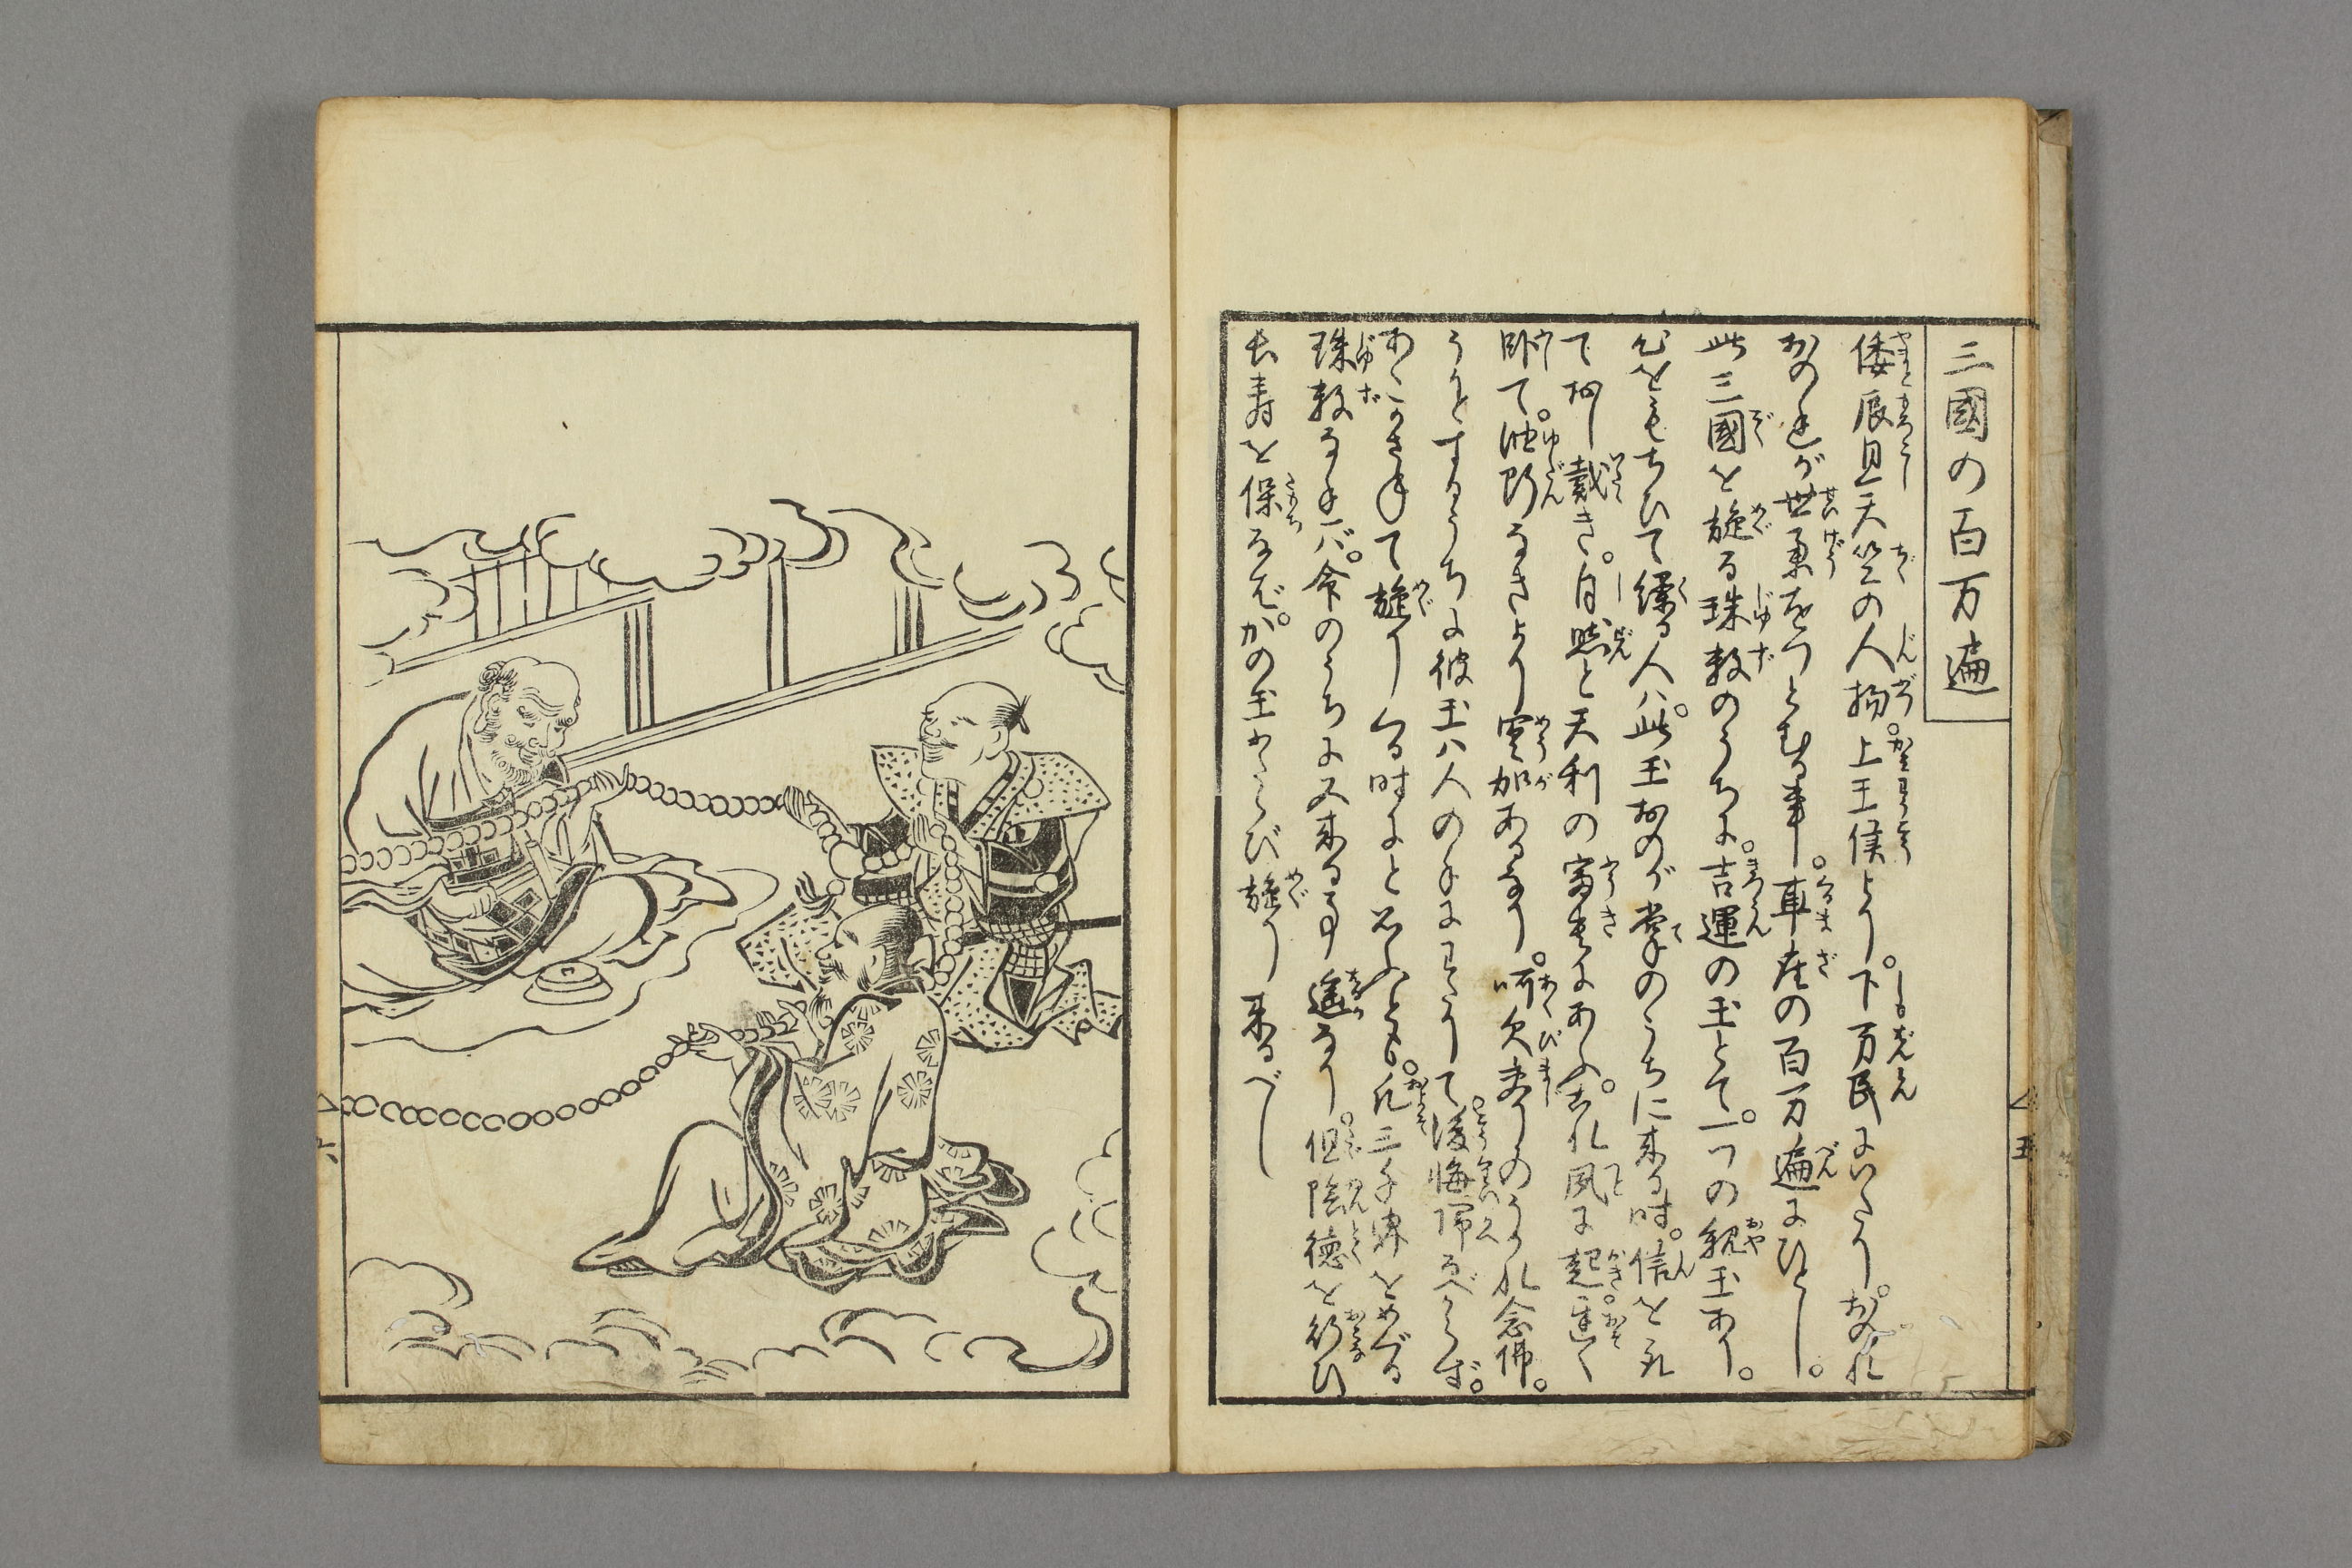 三國の百万遍
倭辰旦天竺の人物。上王侯より。下万民にいたり。おのれ
おのれが世業をつとむる事。車座の百万遍にひとし。
此三國を旋る珠数のうちに。吉運の玉とて。一つの親玉あり。
心をもちひて繰る人ハ。此玉おのが掌のうちに来る時。信を礼
て押戴き。自然と天利の富貴にあふ。されバ夙に起遅く
臥て。油断なきより冥加あるなり。呵欠まじりのうかれ念佛。
うか〳〵とするうちに彼玉ハ人の手にわたりて後悔帰るべからず。
あくる年て旋りくる時にと思へとも。凡三千界をめぐる
珠数なれバ。命のうちに又来る事遙なり。但陰徳を行ひ
長寿を保なバ。かの玉ふたゝび旋り来るべし
五
六